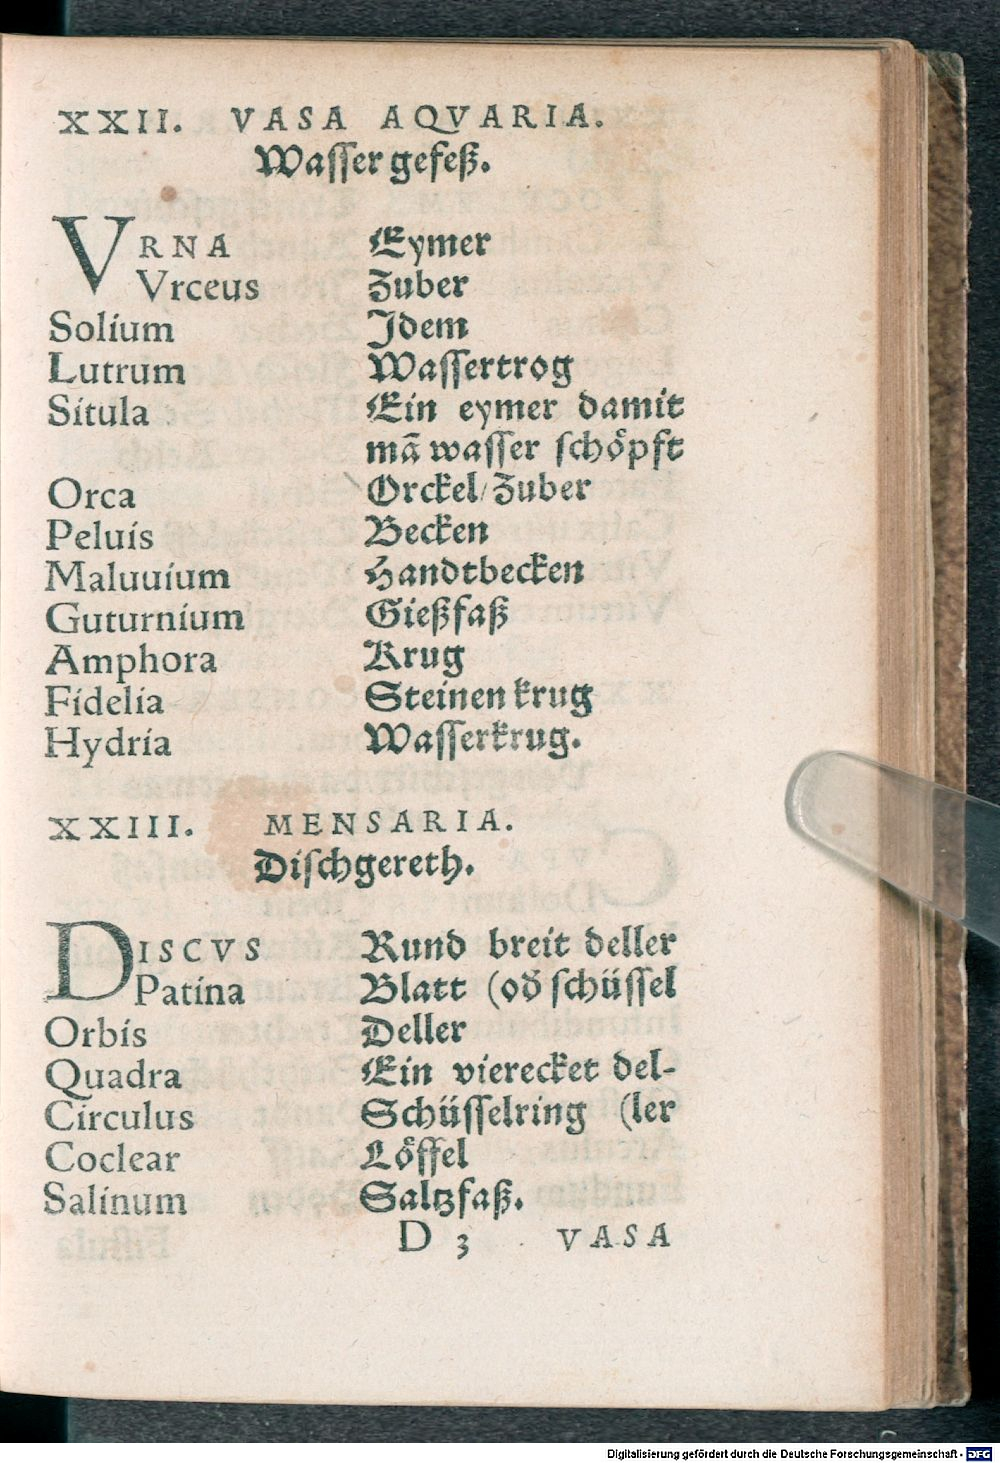 XXII. VASA AQVARIA.
Wasser gefeß.
VRNA Eymer
Vrceus Zuber
Solium Jdem
Lutrum Wassertrog
Situla Ein eymer damit
mã wasser schöpft
Orca Orckel/Zuber
Peluis Becken
Maluuium Handtbecken
Guturnium Gießfaß
Amphora Krug
Fidelia Steinen krug
Hydria Wasserkrug.
XXIII. MENSARIA.
Dischgereth.
DISCVS Rund breit deller
Patina Blatt (od̃ schüssel
Orbis Deller
Quadra Ein vierecket del-
Circulus Schüsselring (ler
Coclear Löffel
Salinum Saltzfaß.
D 3 VASA
Digitalisierung gefördert durch die Deutsche Forschungsgemeinschaft - DFG